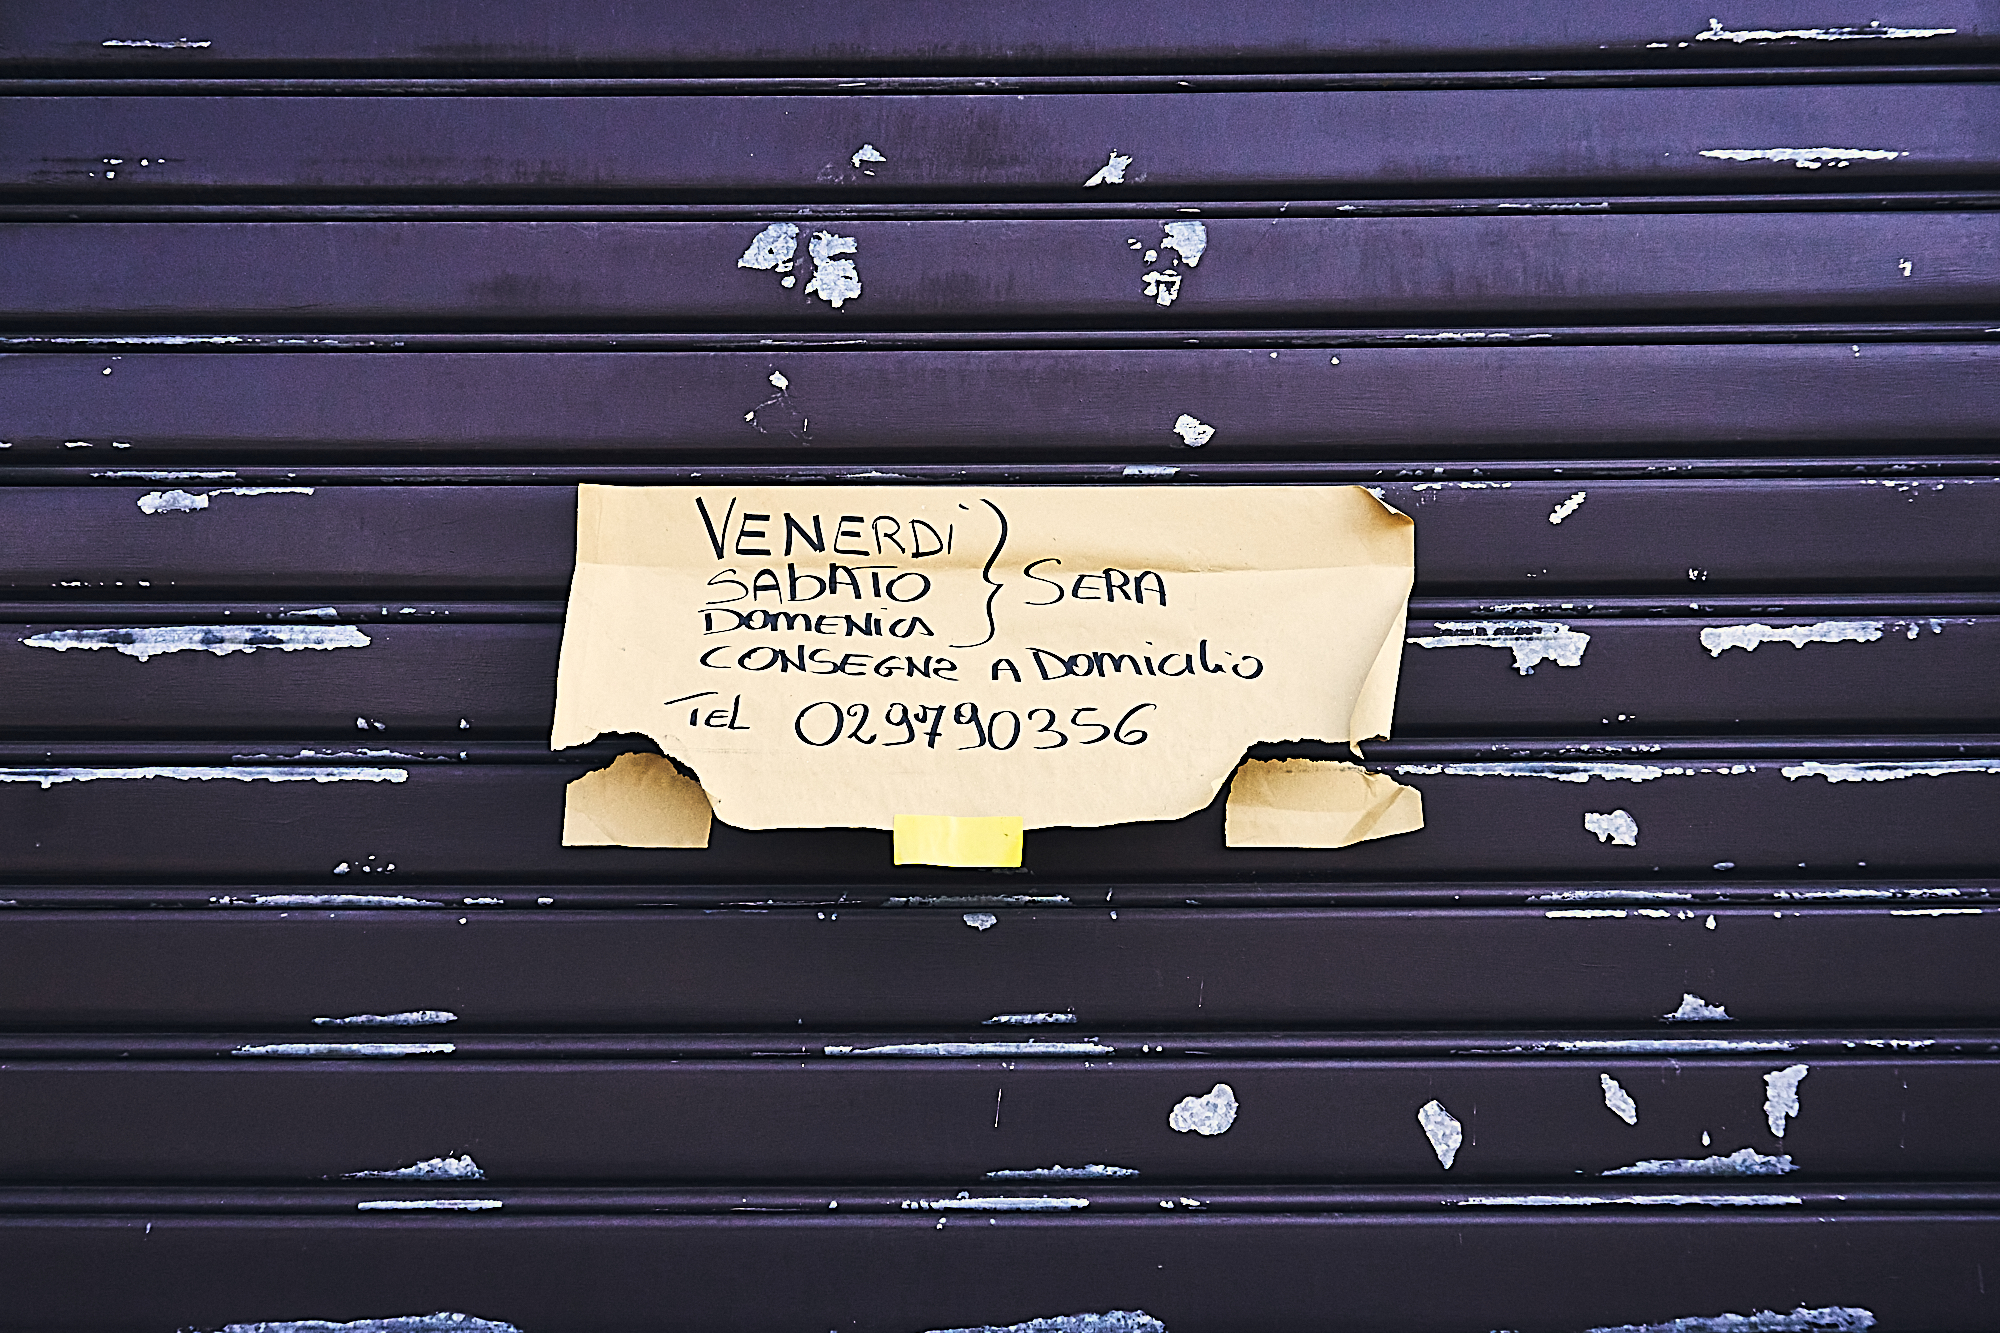 VENERDÌ
SABATO } SERA
DOMENICA
CONSEGNE A DOMICILIO
TEL 029790356